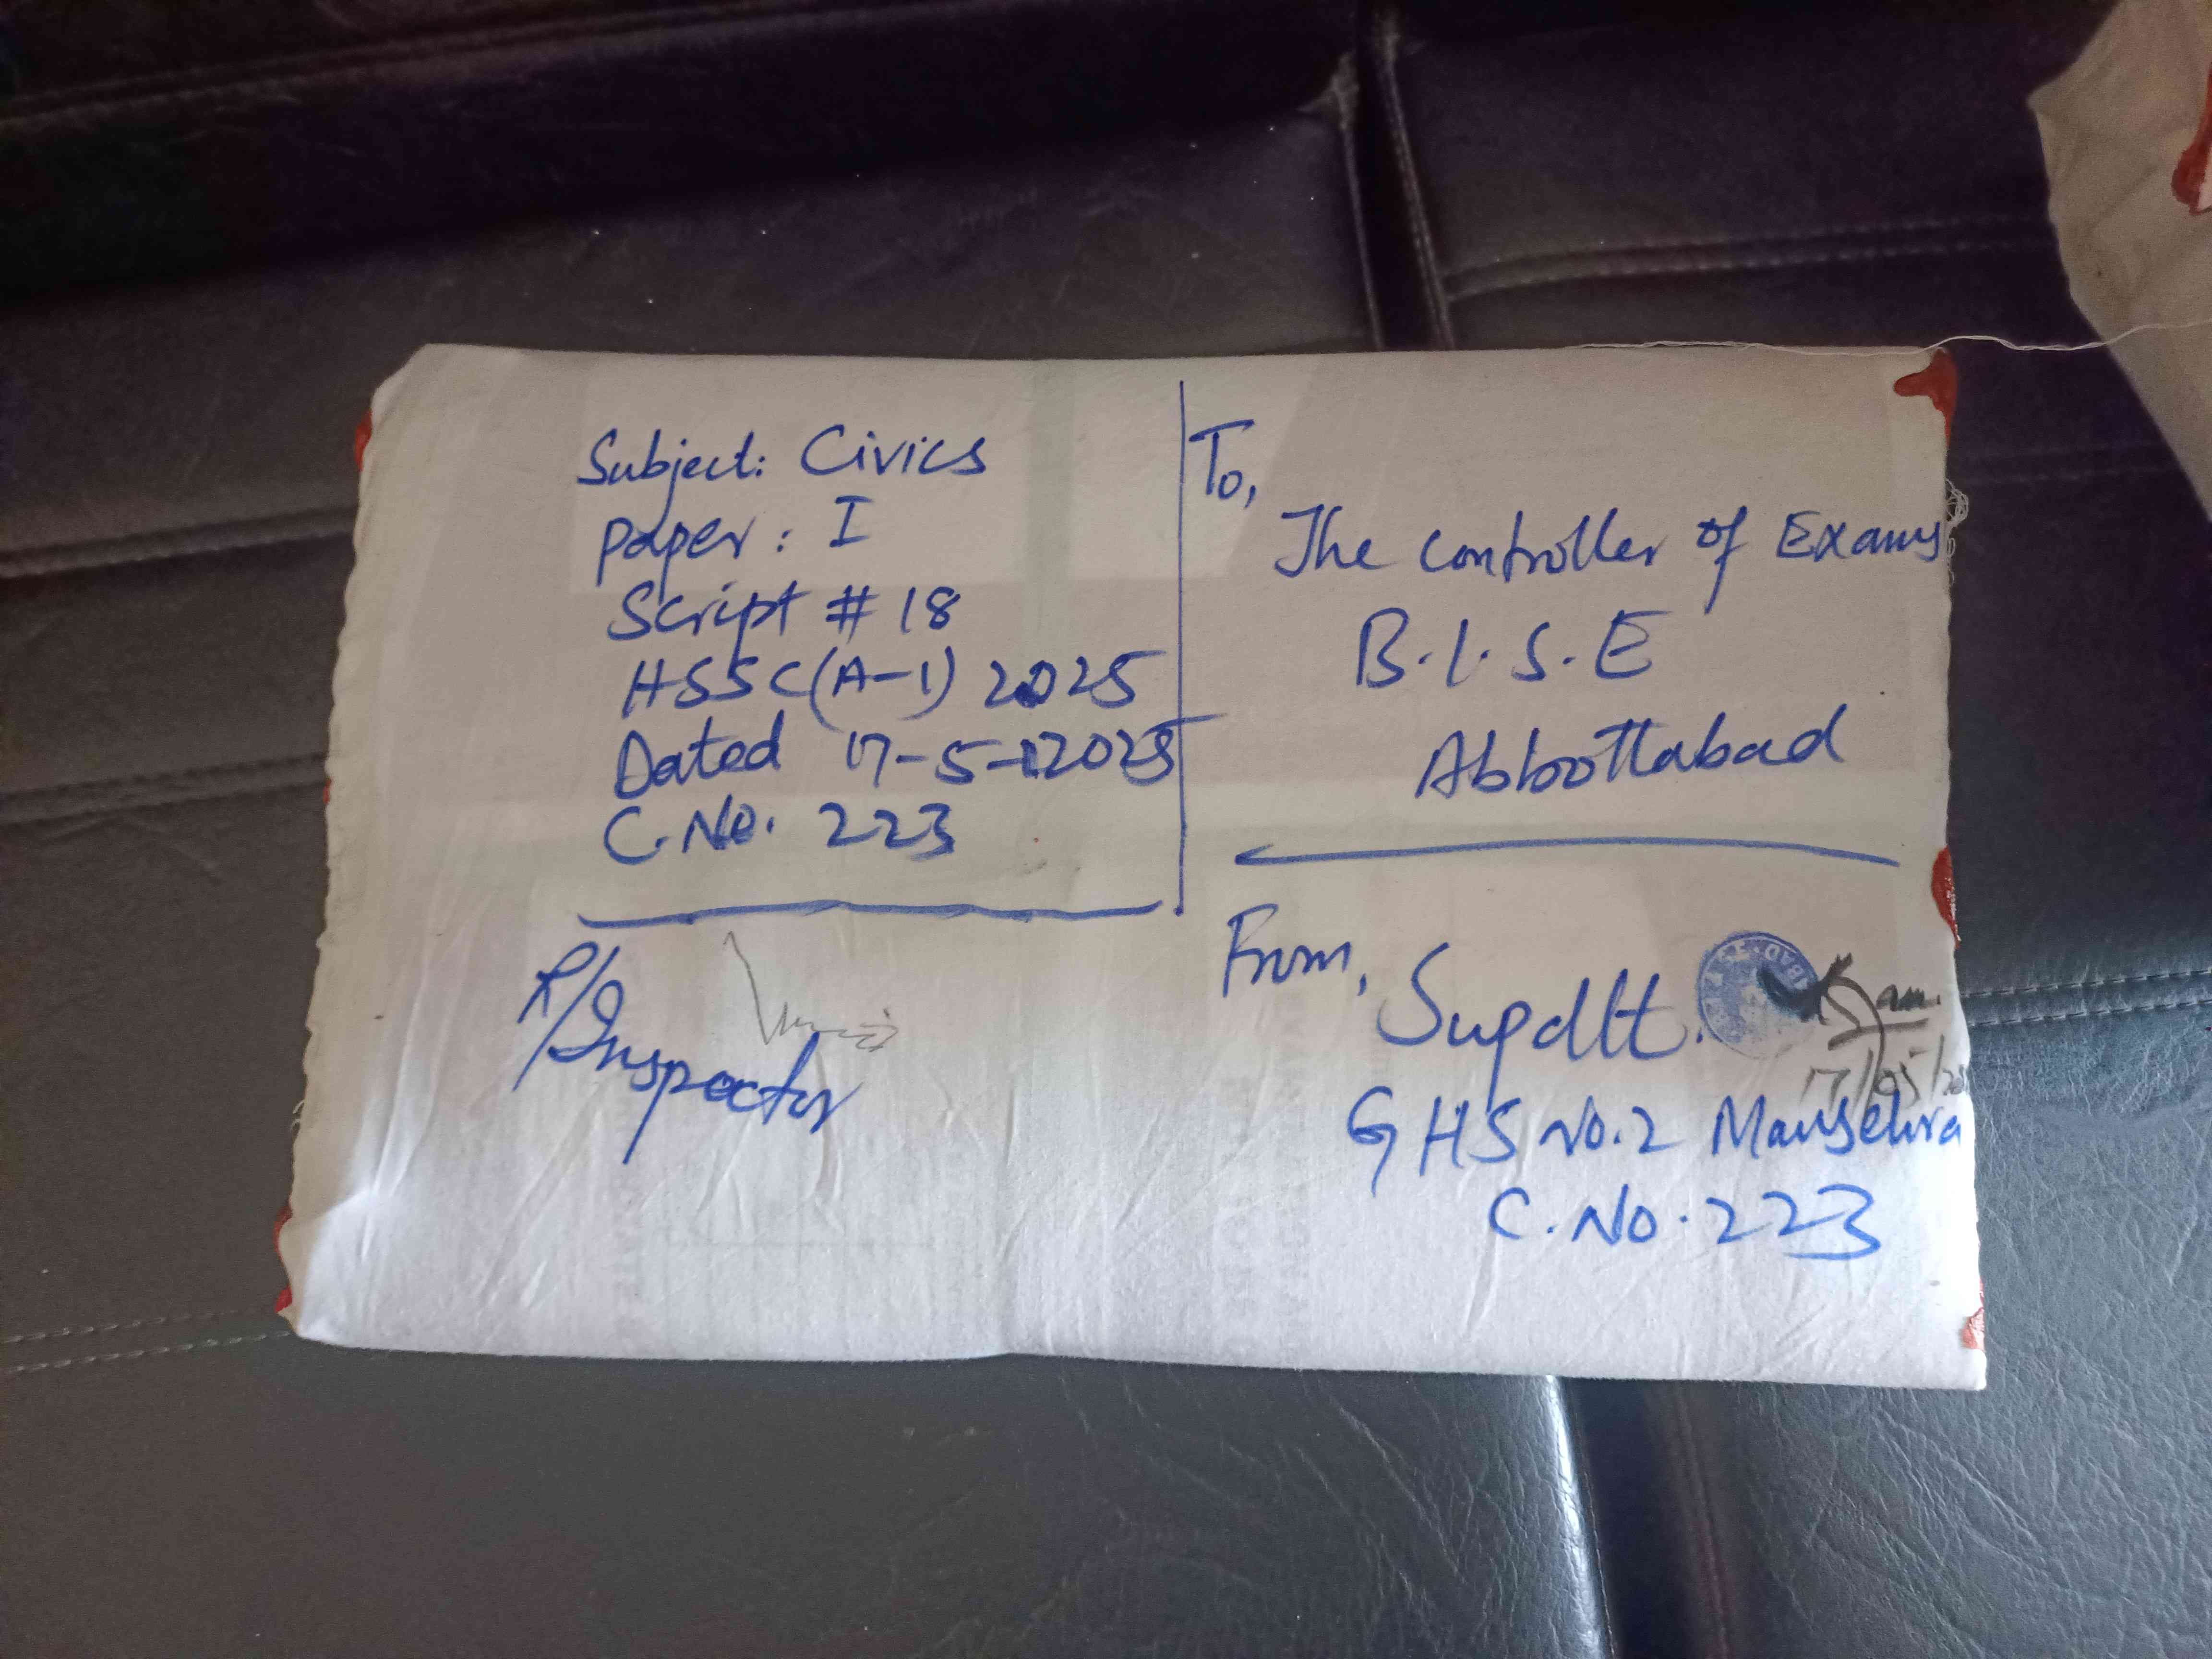 Subject: Civics
Paper: I
Script # 18
HSSC(A-I) 2025
Dated 17-5-2025
C.No. 223
R/Inspector
To,
The Controller of Exams
B.I.S.E
Abbottabad
From,
Supdtt.
17/05/20
GHS No.2 Mansehra
C.No.223